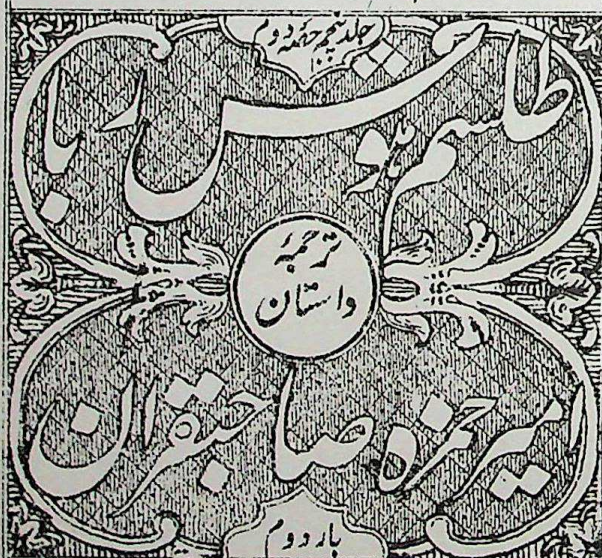 جلد پنجم حصہ دوم
طلسم ہوش ربا
ترجمہ
داستان
امیر حمزہ صاحبقران
بار دوم